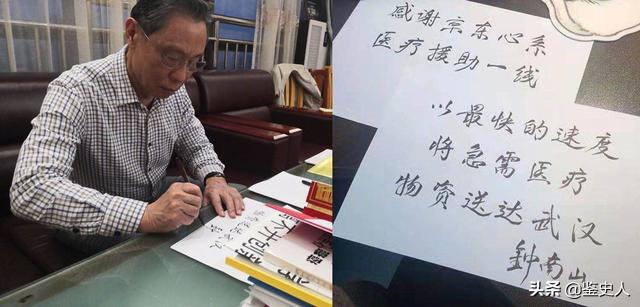 感谢京东心系
医疗援助一线
以最快的速度
将急需医疗
物资送达武汉
钟南山
头条 @鉴史人